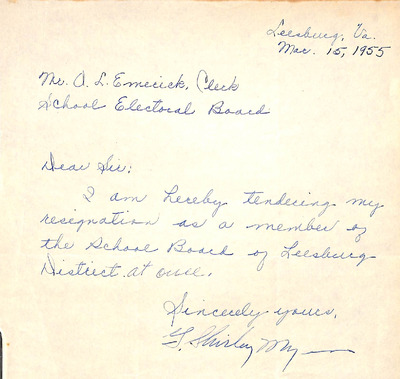 Leesburg, Va.
Mar. 15, 1955
Mr. O. L. Emerick, Clerk
School Electoral Board
Dear Sir:
I am hereby tendering my
resignation as a member of
the School Board of Leesburg
District at once.
Sincerely yours,
Shirley